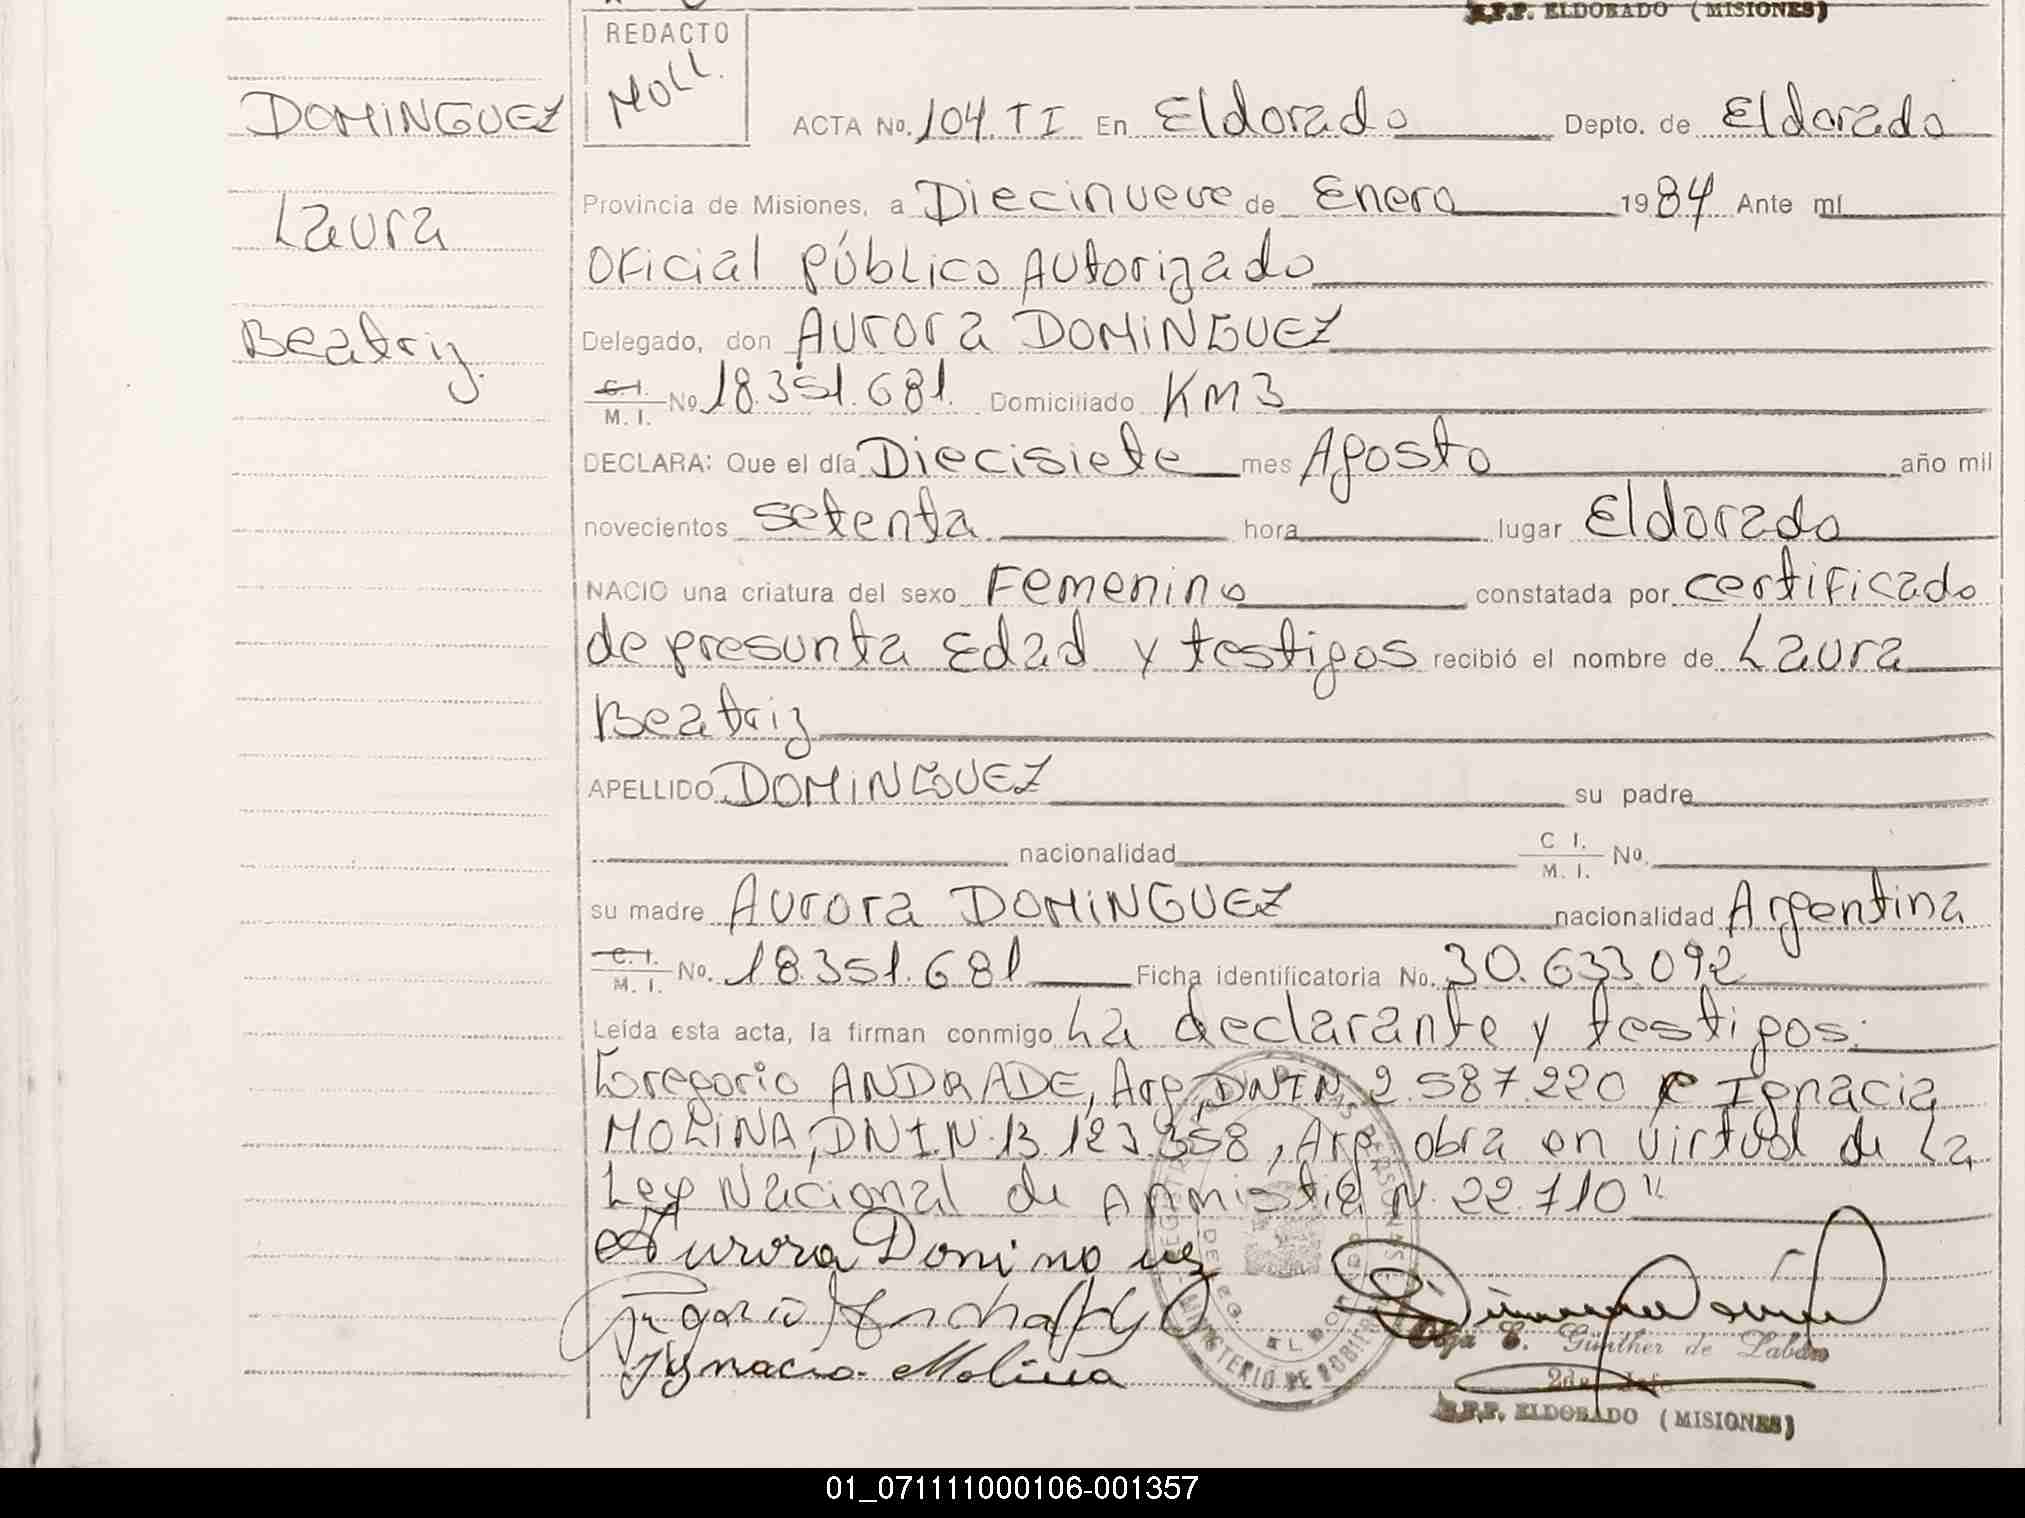 R.P.P. ELDORADO (MISIONES)
REDACTO
MOLL.
DOMINGUEZ
Laura
Beatriz.
ACTA No. 104. TI En Eldorado Depto. de Eldorado
Provincia de Misiones, a Diecinueve de Enero 1984 Ante mí
Oficial Público Autorizado
Delegado, don Aurora DOMINGUEZ
C.I. M.I. No 18.351.681. Domiciliado KM 3
DECLARA: Que el día Diecisiete mes Agosto año mil
novecientos setenta hora lugar Eldorado
NACIO una criatura del sexo Femenino constatada por certificado
de presunta Edad y testigos recibió el nombre de Laura
Beatriz
APELLIDO DOMINGUEZ su padre
nacionalidad C I. M. I. No.
su madre Aurora DOMINGUEZ nacionalidad Argentina
C.I. M. I. No. 18.351.681 Ficha identificatoria No. 30.633.092
Leída esta acta, la firman conmigo La declarante y testigos:
Gregorio ANDRADE, Arg, DNI N 2.587.220 e Ignacia
MOLINA, DNI.N.13.123.358, Arg. obra en virtud de La
Ley Nacional de Anmistia N. 22.710"
Aurora Dominguez
Ignacia Molina
Olga E. Günther de Labán
2da Jefe
R.P.P. ELDORADO (MISIONES)
01_071111000106-001357